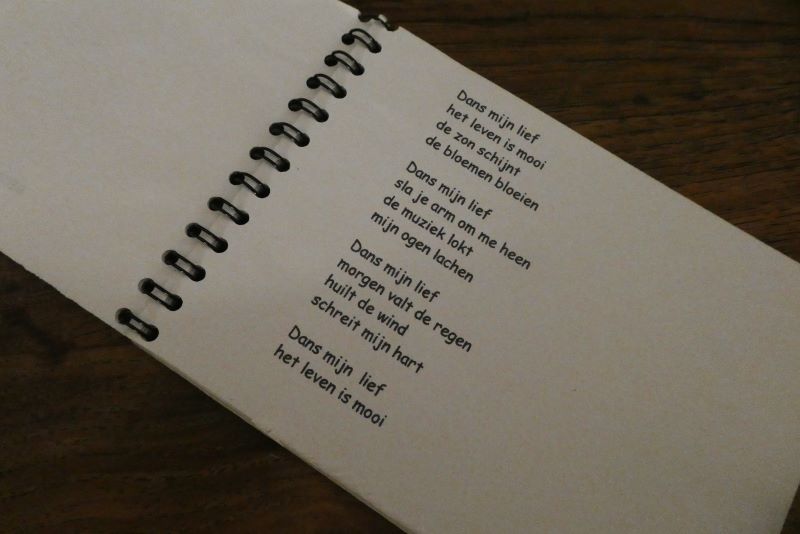 Dans mijn lief
het leven is mooi
de zon schijnt
de bloemen bloeien
Dans mijn lief
sla je arm om me heen
de muziek lokt
mijn ogen lachen
Dans mijn lief
morgen valt de regen
huilt de wind
schreit mijn hart
Dans mijn lief
het leven is mooi